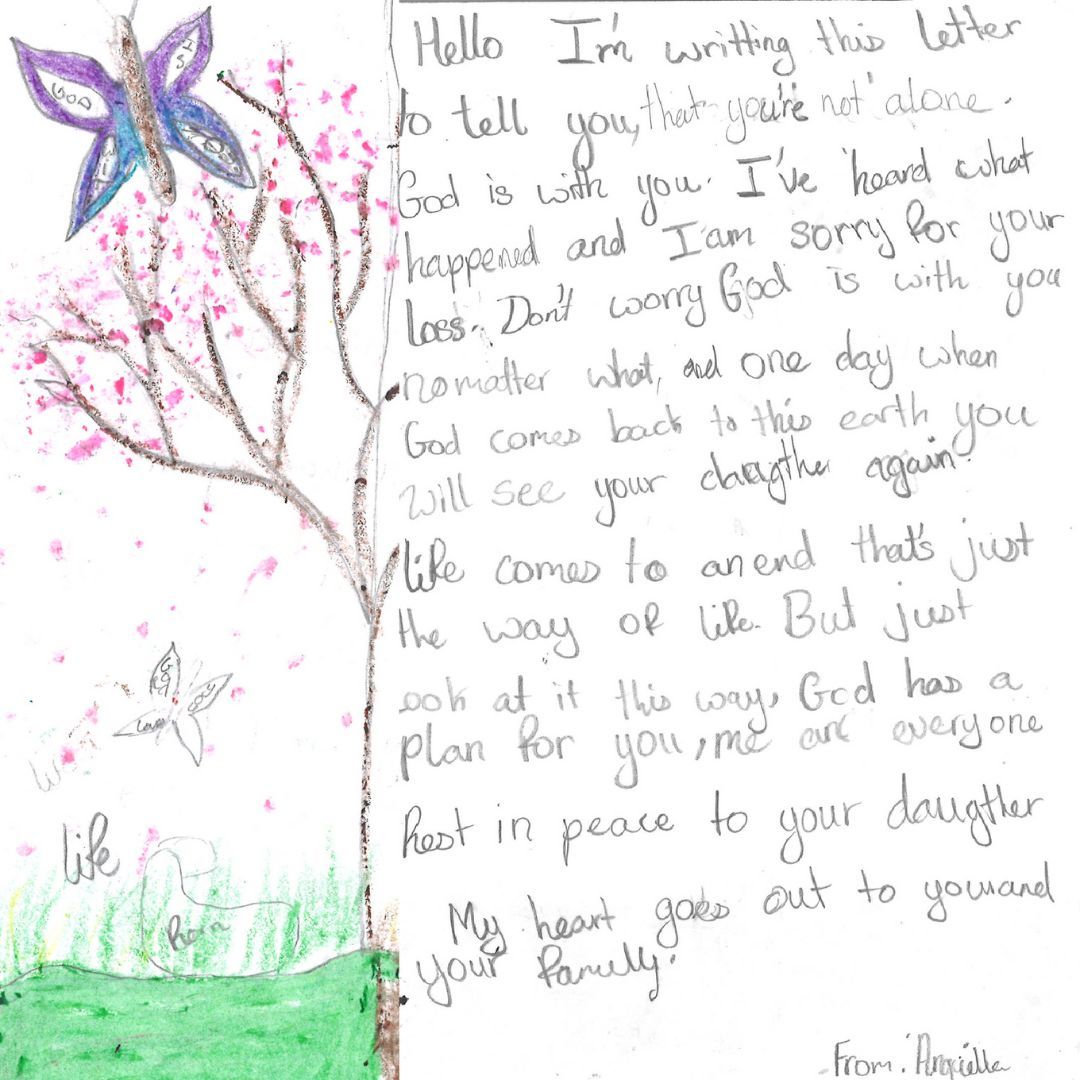 GOD
IS
WITH
Hello I'm writting this letter
to tell you, that you're not alone.
God is with you. I've heard what
happened and I am sorry for your
loss. Don't worry God is with you
no matter what, and one day when
God comes back to this earth you
will see your daugther again.
life comes to an end that's just
the way of life. But just
ook at it this way, God has a
plan for you, me and everyone
Rest in peace to your daugther
My heart goes out to you and
your family.
love
life
From: